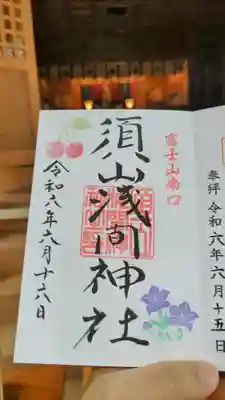 奉拝 令和六年六月十五日
富士山南口
須山浅间神社
令和六年六月十六日